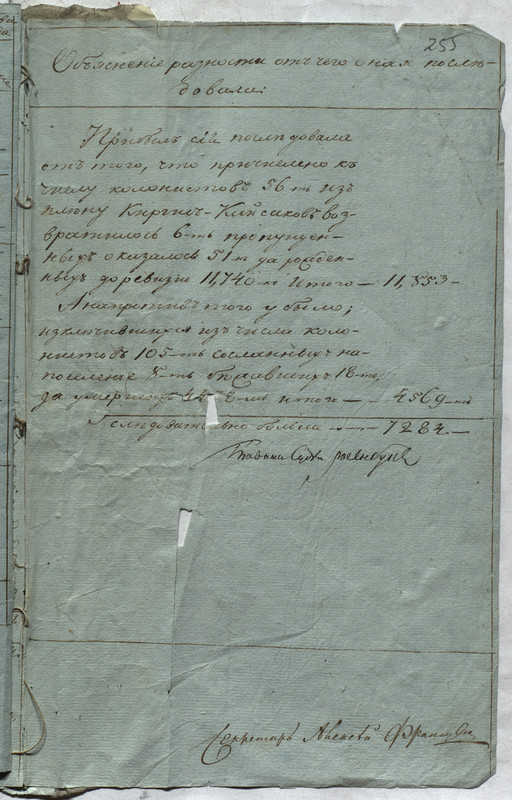 255
Объясненіе разности отъ чего оная послѣ-
довала:
Прибыль сія послѣдовала
отъ того, что причислено къ
числу колонистовъ 56-ть изъ
плѣну Киргисъ-Кайсаковъ воз-
вратилось 6-ть пропущен-
ныхъ оказалось 51 да рожден-
ныхъ до ревизіи 11,740 итого — 11,853 —
А напротивъ того убыло;
изключившихся изъ числа коло-
нистовъ 105-ть сосланныхъ на-
поселеніе 8-ть бѣжавшихъ 18-ть
да умершихъ итого — 4569
следовательно более — 7284 —
Главный Судья
Секретарь